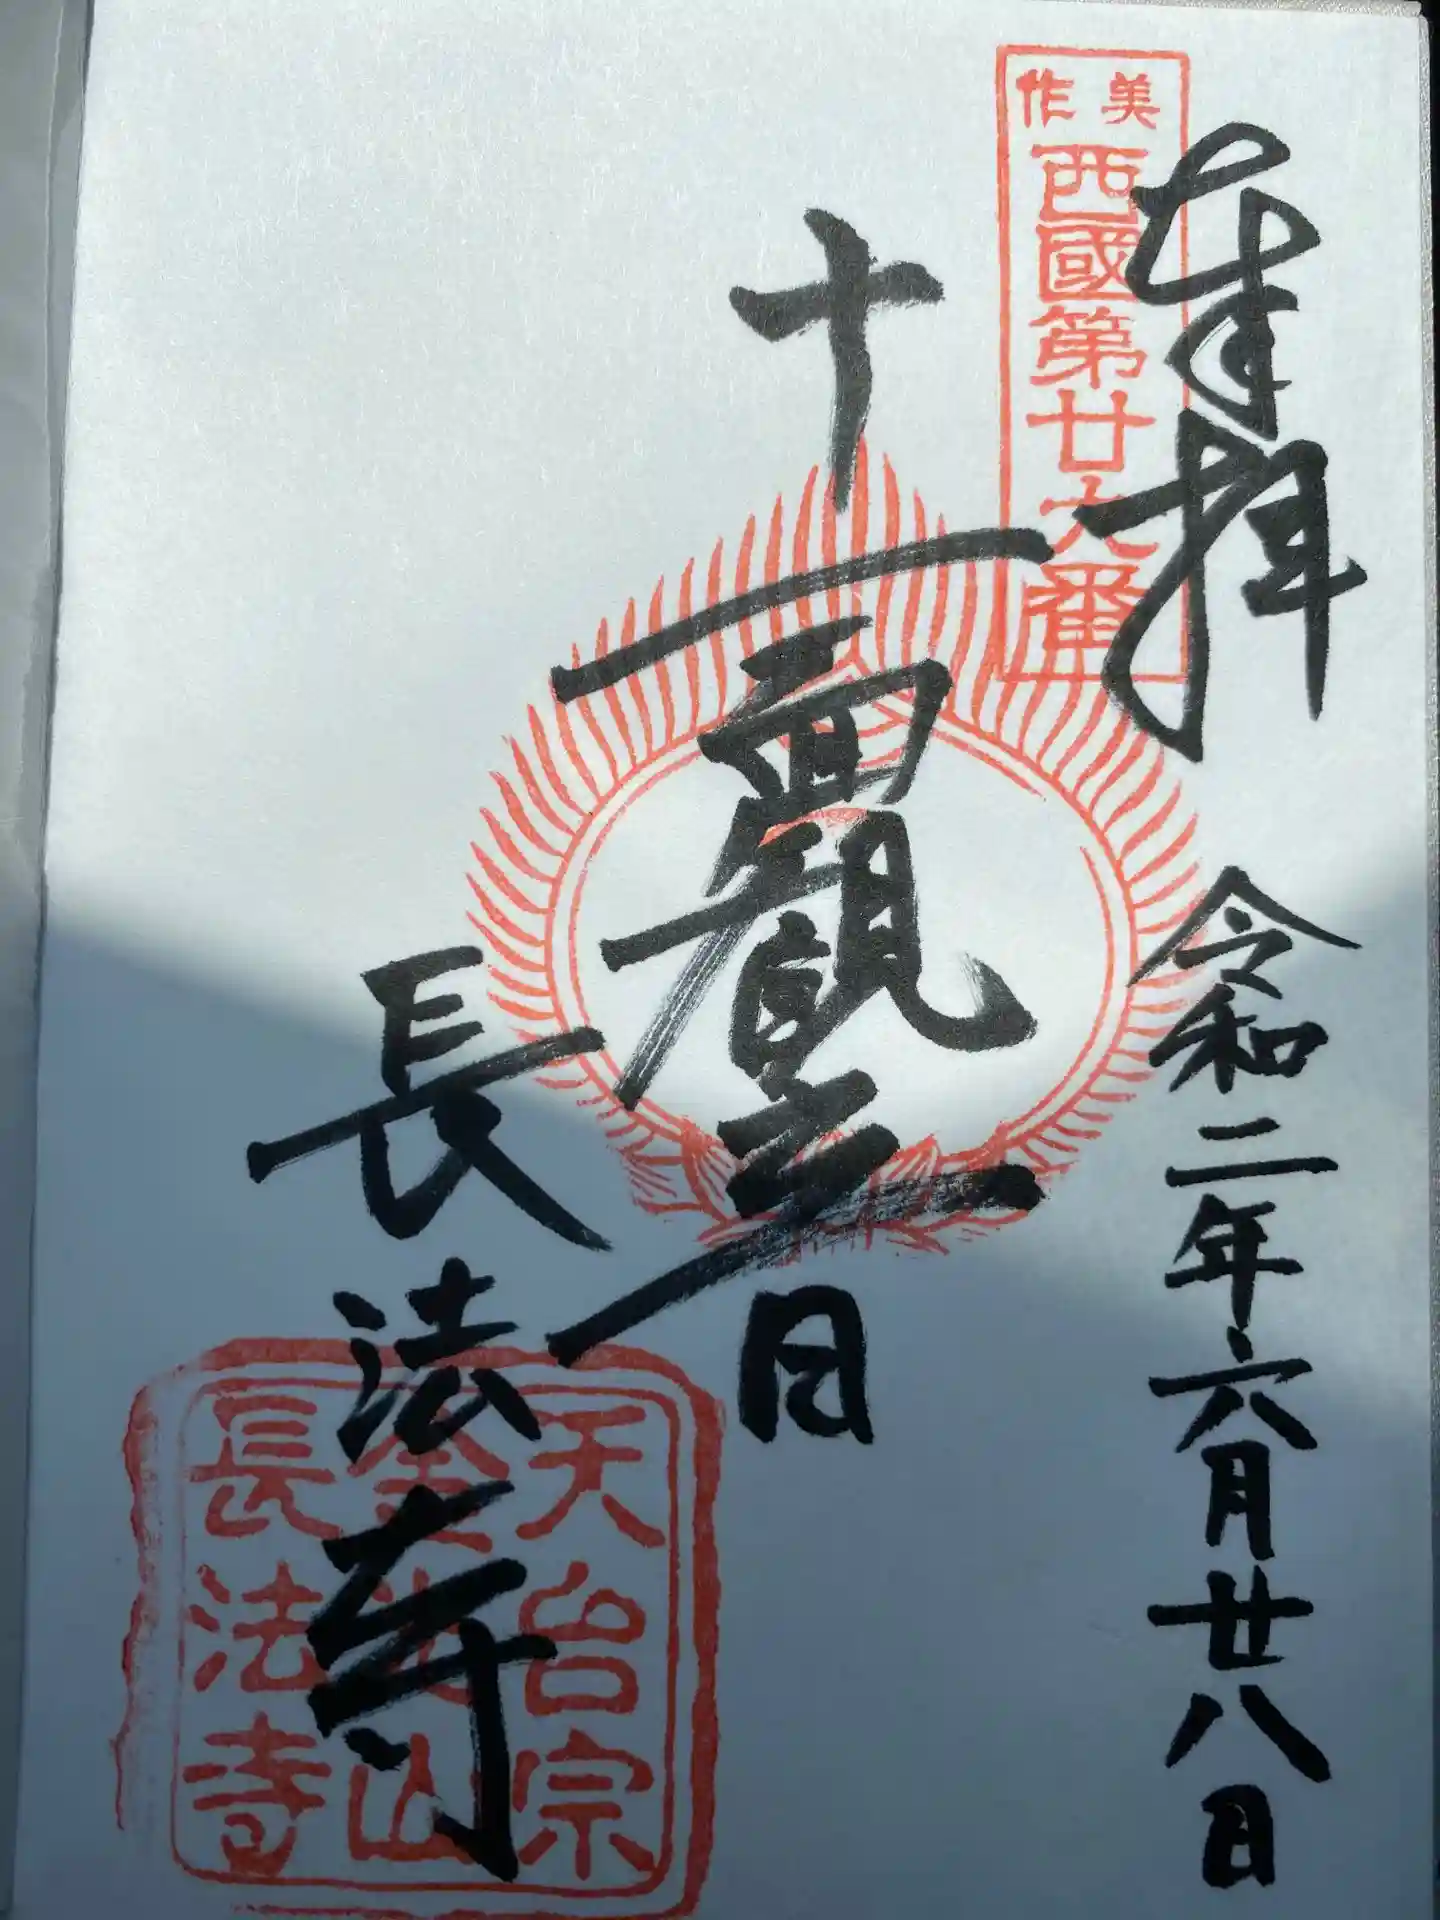 奉拝
令和二年六月廿八日
美作
西國第廿九番
十一面観世音
長法寺
天台宗
金光山
長法寺